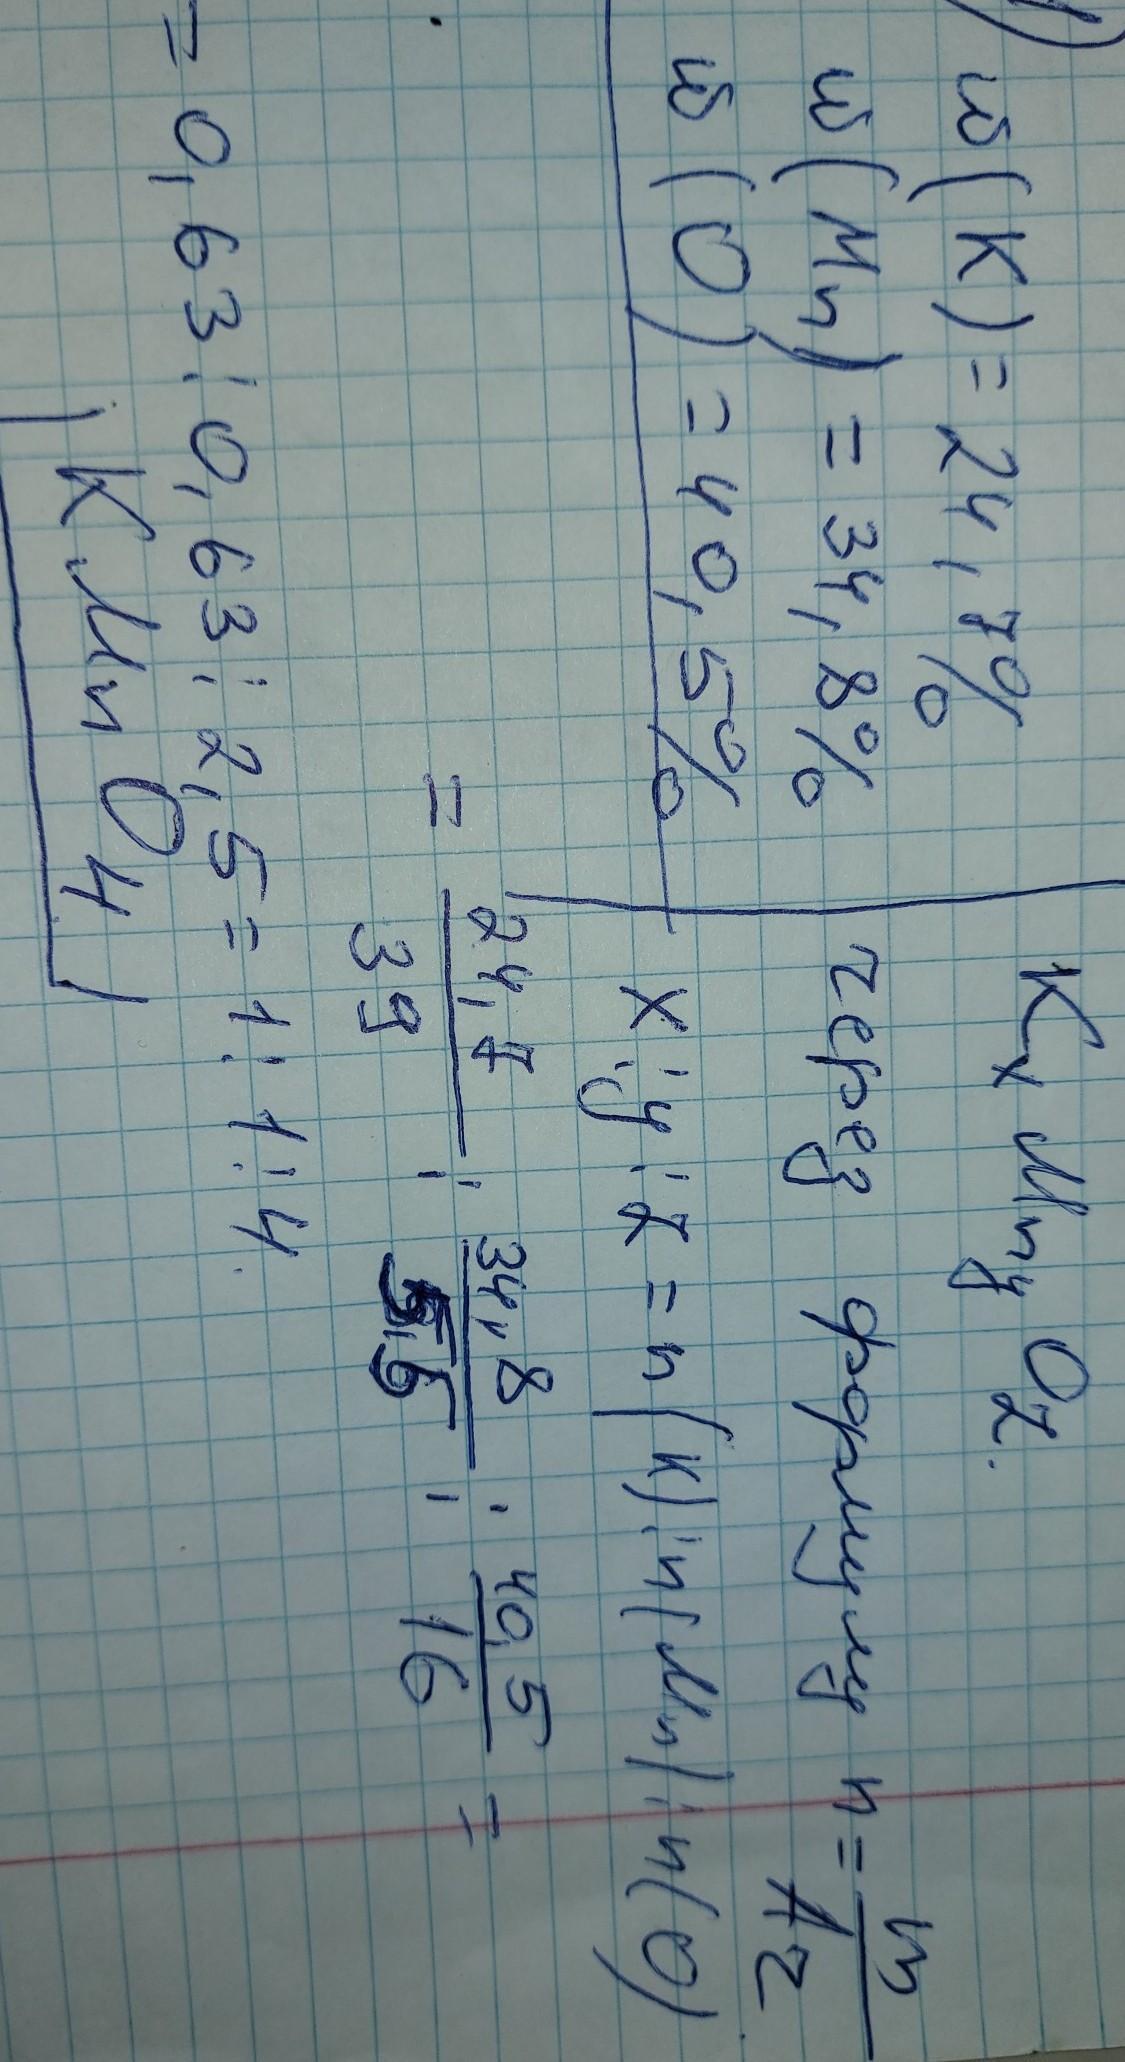 w(K) = 24,7%
w(Mn) = 34,8%
w(O) = 40,5%
Kx Mny Oz.
через формулу n = m/Ar
x:y:z = n(K):n(Mn):n(O)
= 24,7/39 : 34,8/55 : 40,5/16 =
= 0,63:0,63:2,5 = 1:1:4.
KMnO4